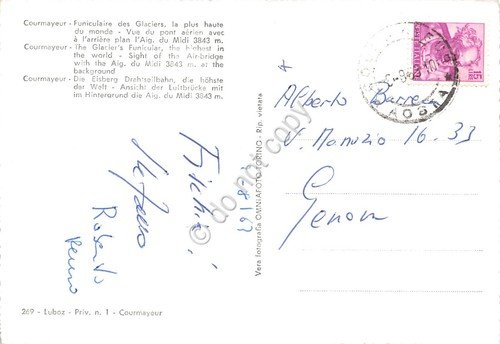 Courmayeur - Funiculaire des Glaciers, la plus haute
du monde - Vue du pont aérien avec
à l'arrière plan l'Aig. du Midi 3843 m.
Courmayeur - The Glacier's Funicular, the highest in
the world - Sight of the Air-bridge
with the Aig. du Midi 3843 m. at the
background
Courmayeur - Die Eisberg Drahtseilbahn, die höhste
der Welt - Ansicht der Luftbrücke mit
im Hintergrund die Aig. du Midi 3843 m.
Stefano
Roberto
Vera fotografia OMNIAFOTO TORINO - Rip. vietata
AOSTA
Alberto
V. Manuzio 16-33
Genova
do not copy
269 - Luboz - Priv. n. 1 - Courmayeur